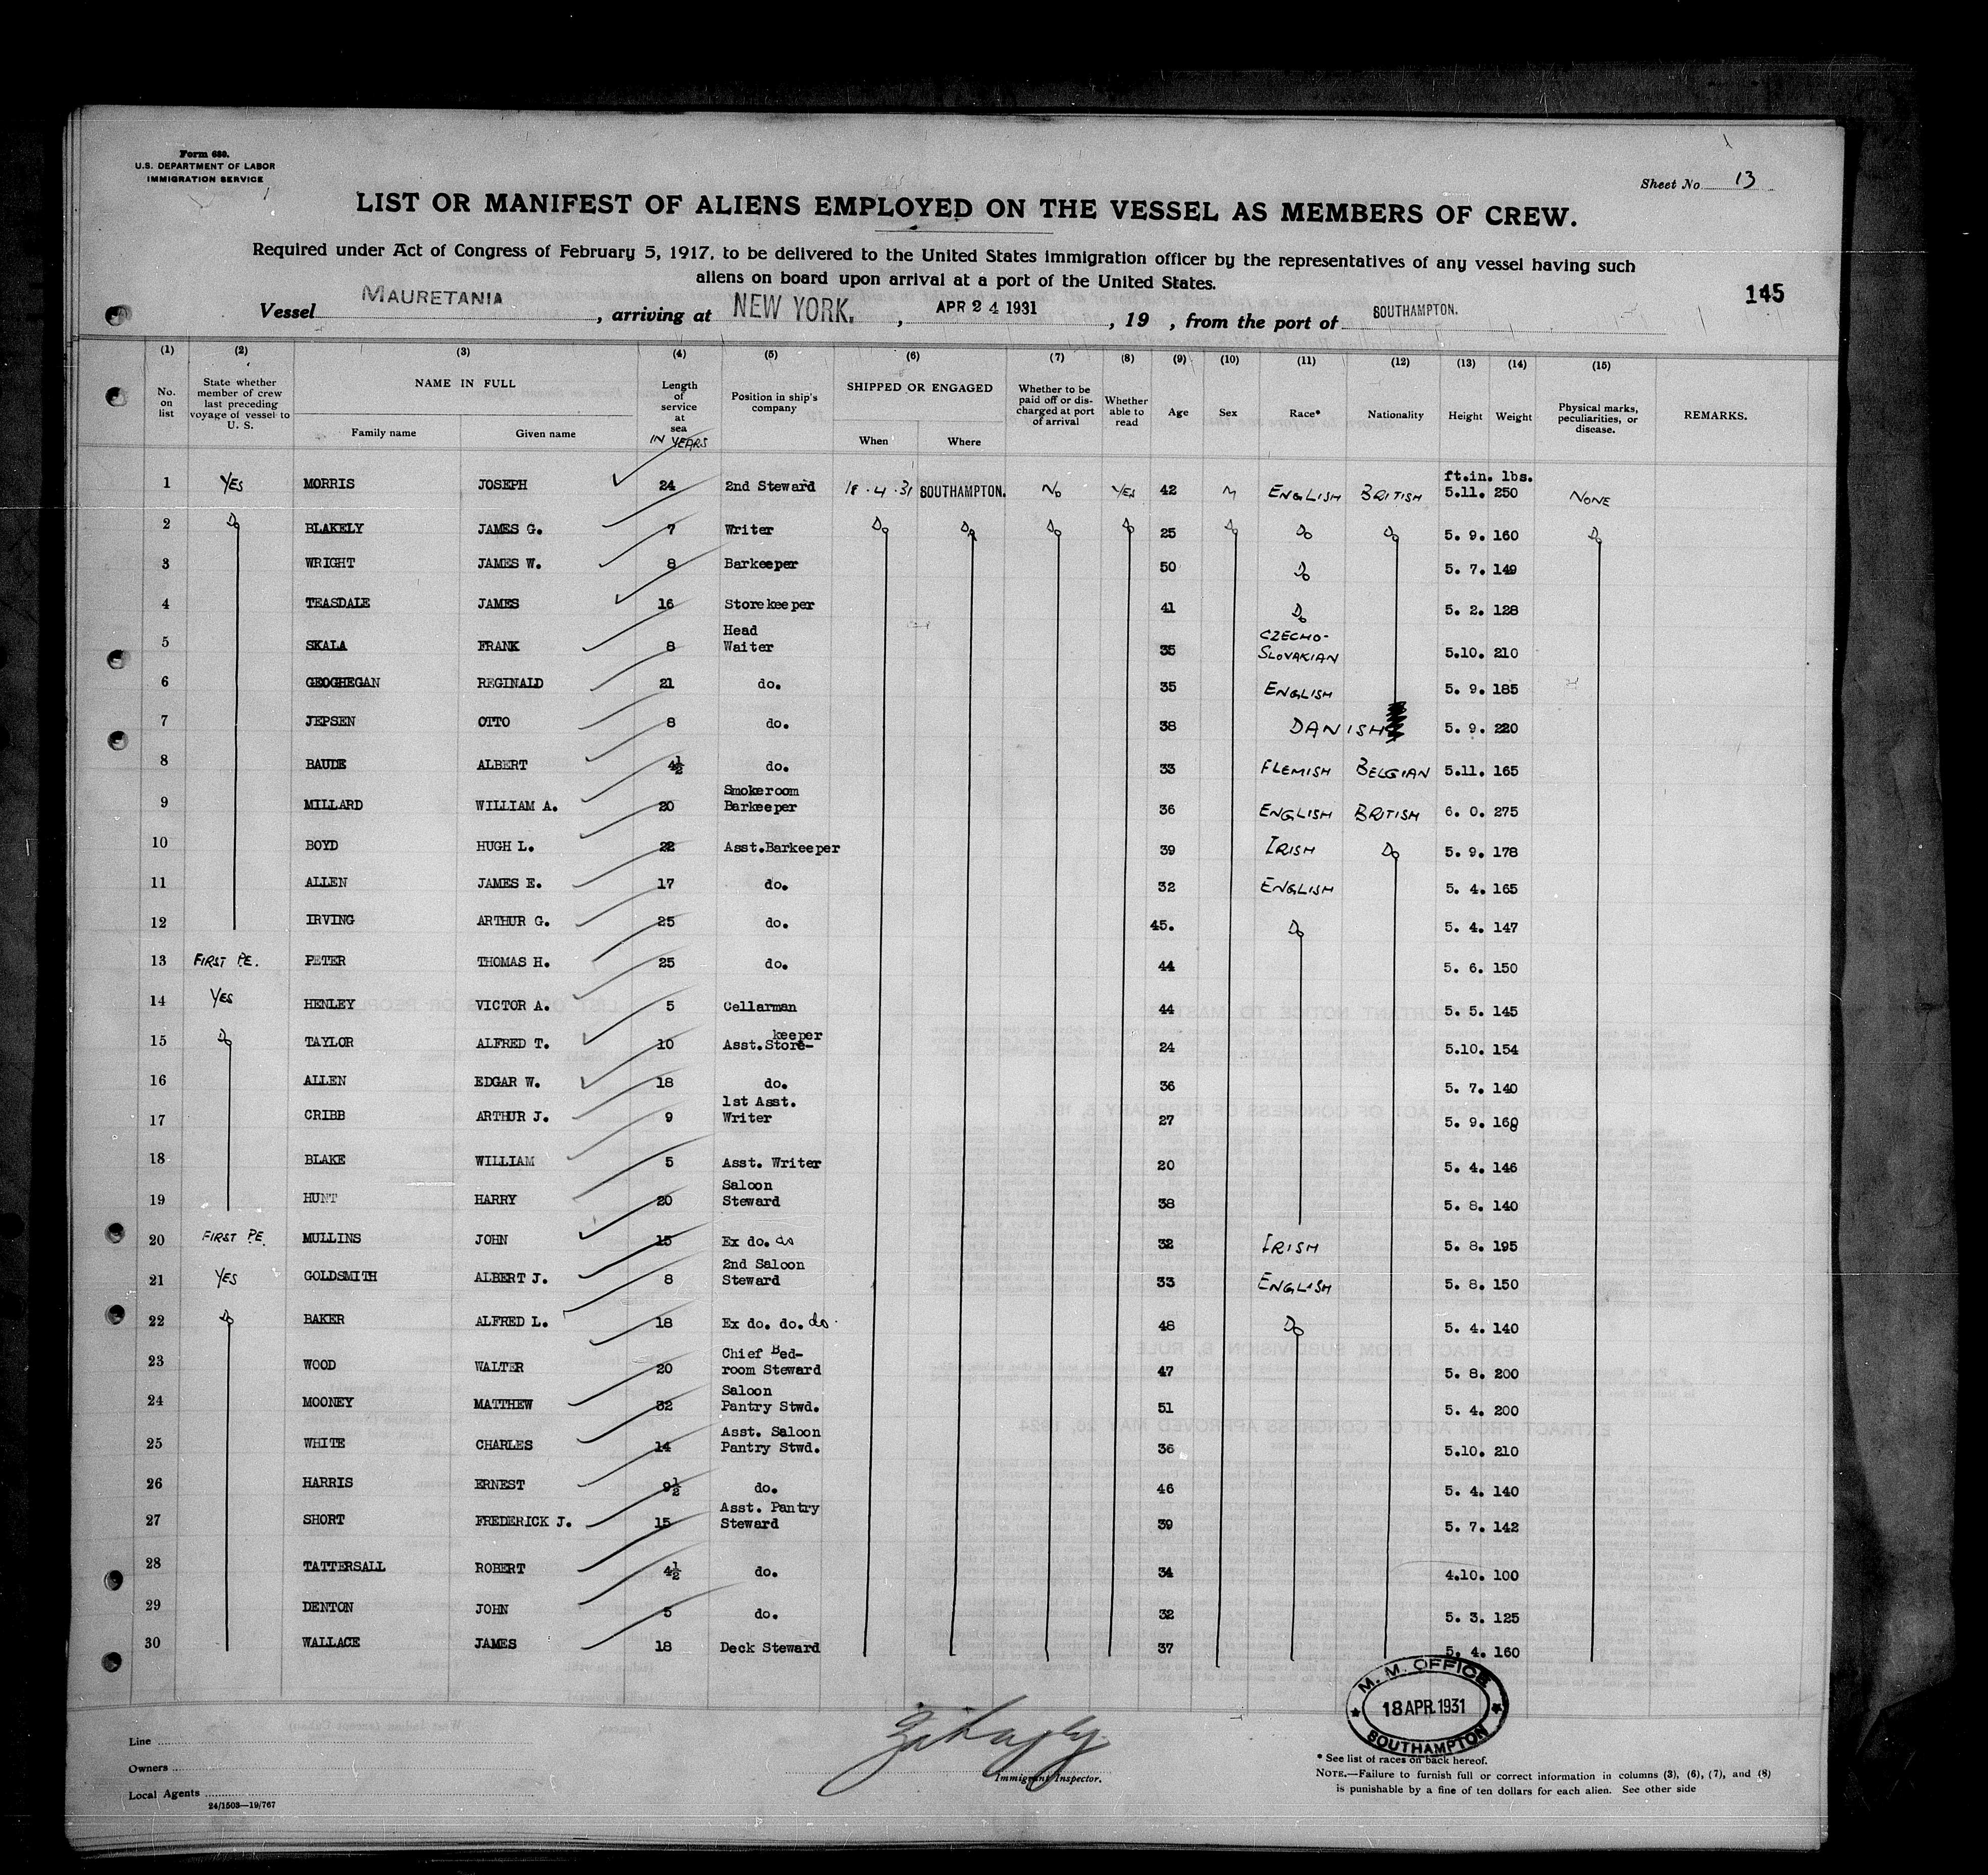 Form 689.
U.S. DEPARTMENT OF LABOR
IMMIGRATION SERVICE
Sheet No 13
LIST OR MANIFEST OF ALIENS EMPLOYED ON THE VESSEL AS MEMBERS OF CREW.
Required under Act of Congress of February 5, 1917, to be delivered to the United States immigration officer by the representatives of any vessel having such
aliens on board upon arrival at a port of the United States.
145
Vessel MAURETANIA, arriving at NEW YORK., APR 24 1931, 19 , from the port of SOUTHAMPTON.
(1) (2) (3) (4) (5) (6) (7) (8) (9) (10) (11) (12) (13) (14) (15)
No. on list
State whether member of crew last preceding voyage of vessel to U. S.
NAME IN FULL
Family name Given name
Length of service at sea IN YEARS
Position in ship's company
SHIPPED OR ENGAGED
When Where
Whether to be paid off or discharged at port of arrival
Whether able to read
Age Sex Race* Nationality Height Weight
Physical marks, peculiarities, or disease.
REMARKS.
ft.in. lbs.
1 YES MORRIS JOSEPH 24 2nd Steward 18.4.31 SOUTHAMPTON. No YES 42 M ENGLISH BRITISH 5.11. 250 NONE
2 Do BLAKELY JAMES G. 7 Writer Do Do Do Do 25 Do Do Do 5. 9. 160 Do
3 WRIGHT JAMES W. 8 Barkeeper 50 Do 5. 7. 149
4 TEASDALE JAMES 16 Storekeeper 41 Do 5. 2. 128
5 SKALA FRANK 8 Head Waiter 35 CZECHO-SLOVAKIAN 5.10. 210
6 GEOGHEGAN REGINALD 21 do. 35 ENGLISH 5. 9. 185
7 JEPSEN OTTO 8 do. 38 DANISH 5. 9. 220
8 BAUDE ALBERT 4½ do. 33 FLEMISH BELGIAN 5.11. 165
9 MILLARD WILLIAM A. 20 Smokeroom Barkeeper 36 ENGLISH BRITISH 6. 0. 275
10 BOYD HUGH L. 22 Asst.Barkeeper 39 IRISH Do 5. 9. 178
11 ALLEN JAMES E. 17 do. 32 ENGLISH 5. 4. 165
12 IRVING ARTHUR G. 25 do. 45. Do 5. 4. 147
13 FIRST PE. PETER THOMAS H. 25 do. 44 5. 6. 150
14 YES HENLEY VICTOR A. 5 Cellarman 44 5. 5. 145
15 Do TAYLOR ALFRED T. 10 Asst.Store-keeper 24 5.10. 154
16 ALLEN EDGAR W. 18 do. 36 5. 7. 140
17 CRIBB ARTHUR J. 9 1st Asst. Writer 27 5. 9. 160
18 BLAKE WILLIAM 5 Asst. Writer 20 5. 4. 146
19 HUNT HARRY 20 Saloon Steward 38 5. 8. 140
20 FIRST PE. MULLINS JOHN 15 Ex do. do 32 IRISH 5. 8. 195
21 YES GOLDSMITH ALBERT J. 8 2nd Saloon Steward 33 ENGLISH 5. 8. 150
22 Do BAKER ALFRED L. 18 Ex do. do. do. 48 Do 5. 4. 140
23 WOOD WALTER 20 Chief Bed-room Steward 47 5. 8. 200
24 MOONEY MATTHEW 32 Saloon Pantry Stwd. 51 5. 4. 200
25 WHITE CHARLES 14 Asst. Saloon Pantry Stwd. 36 5.10. 210
26 HARRIS ERNEST 9½ do. 46 5. 4. 140
27 SHORT FREDERICK J. 15 Asst. Pantry Steward 39 5. 7. 142
28 TATTERSALL ROBERT 4½ do. 34 4.10. 100
29 DENTON JOHN 5 do. 32 5. 3. 125
30 WALLACE JAMES 18 Deck Steward 37 5. 4. 160
M. M. OFFICE
18 APR. 1931
SOUTHAMPTON
Line
Owners
Local Agents
24/1503—19/767
Immigrant Inspector.
* See list of races on back hereof.
NOTE.—Failure to furnish full or correct information in columns (3), (6), (7), and (8)
is punishable by a fine of ten dollars for each alien. See other side